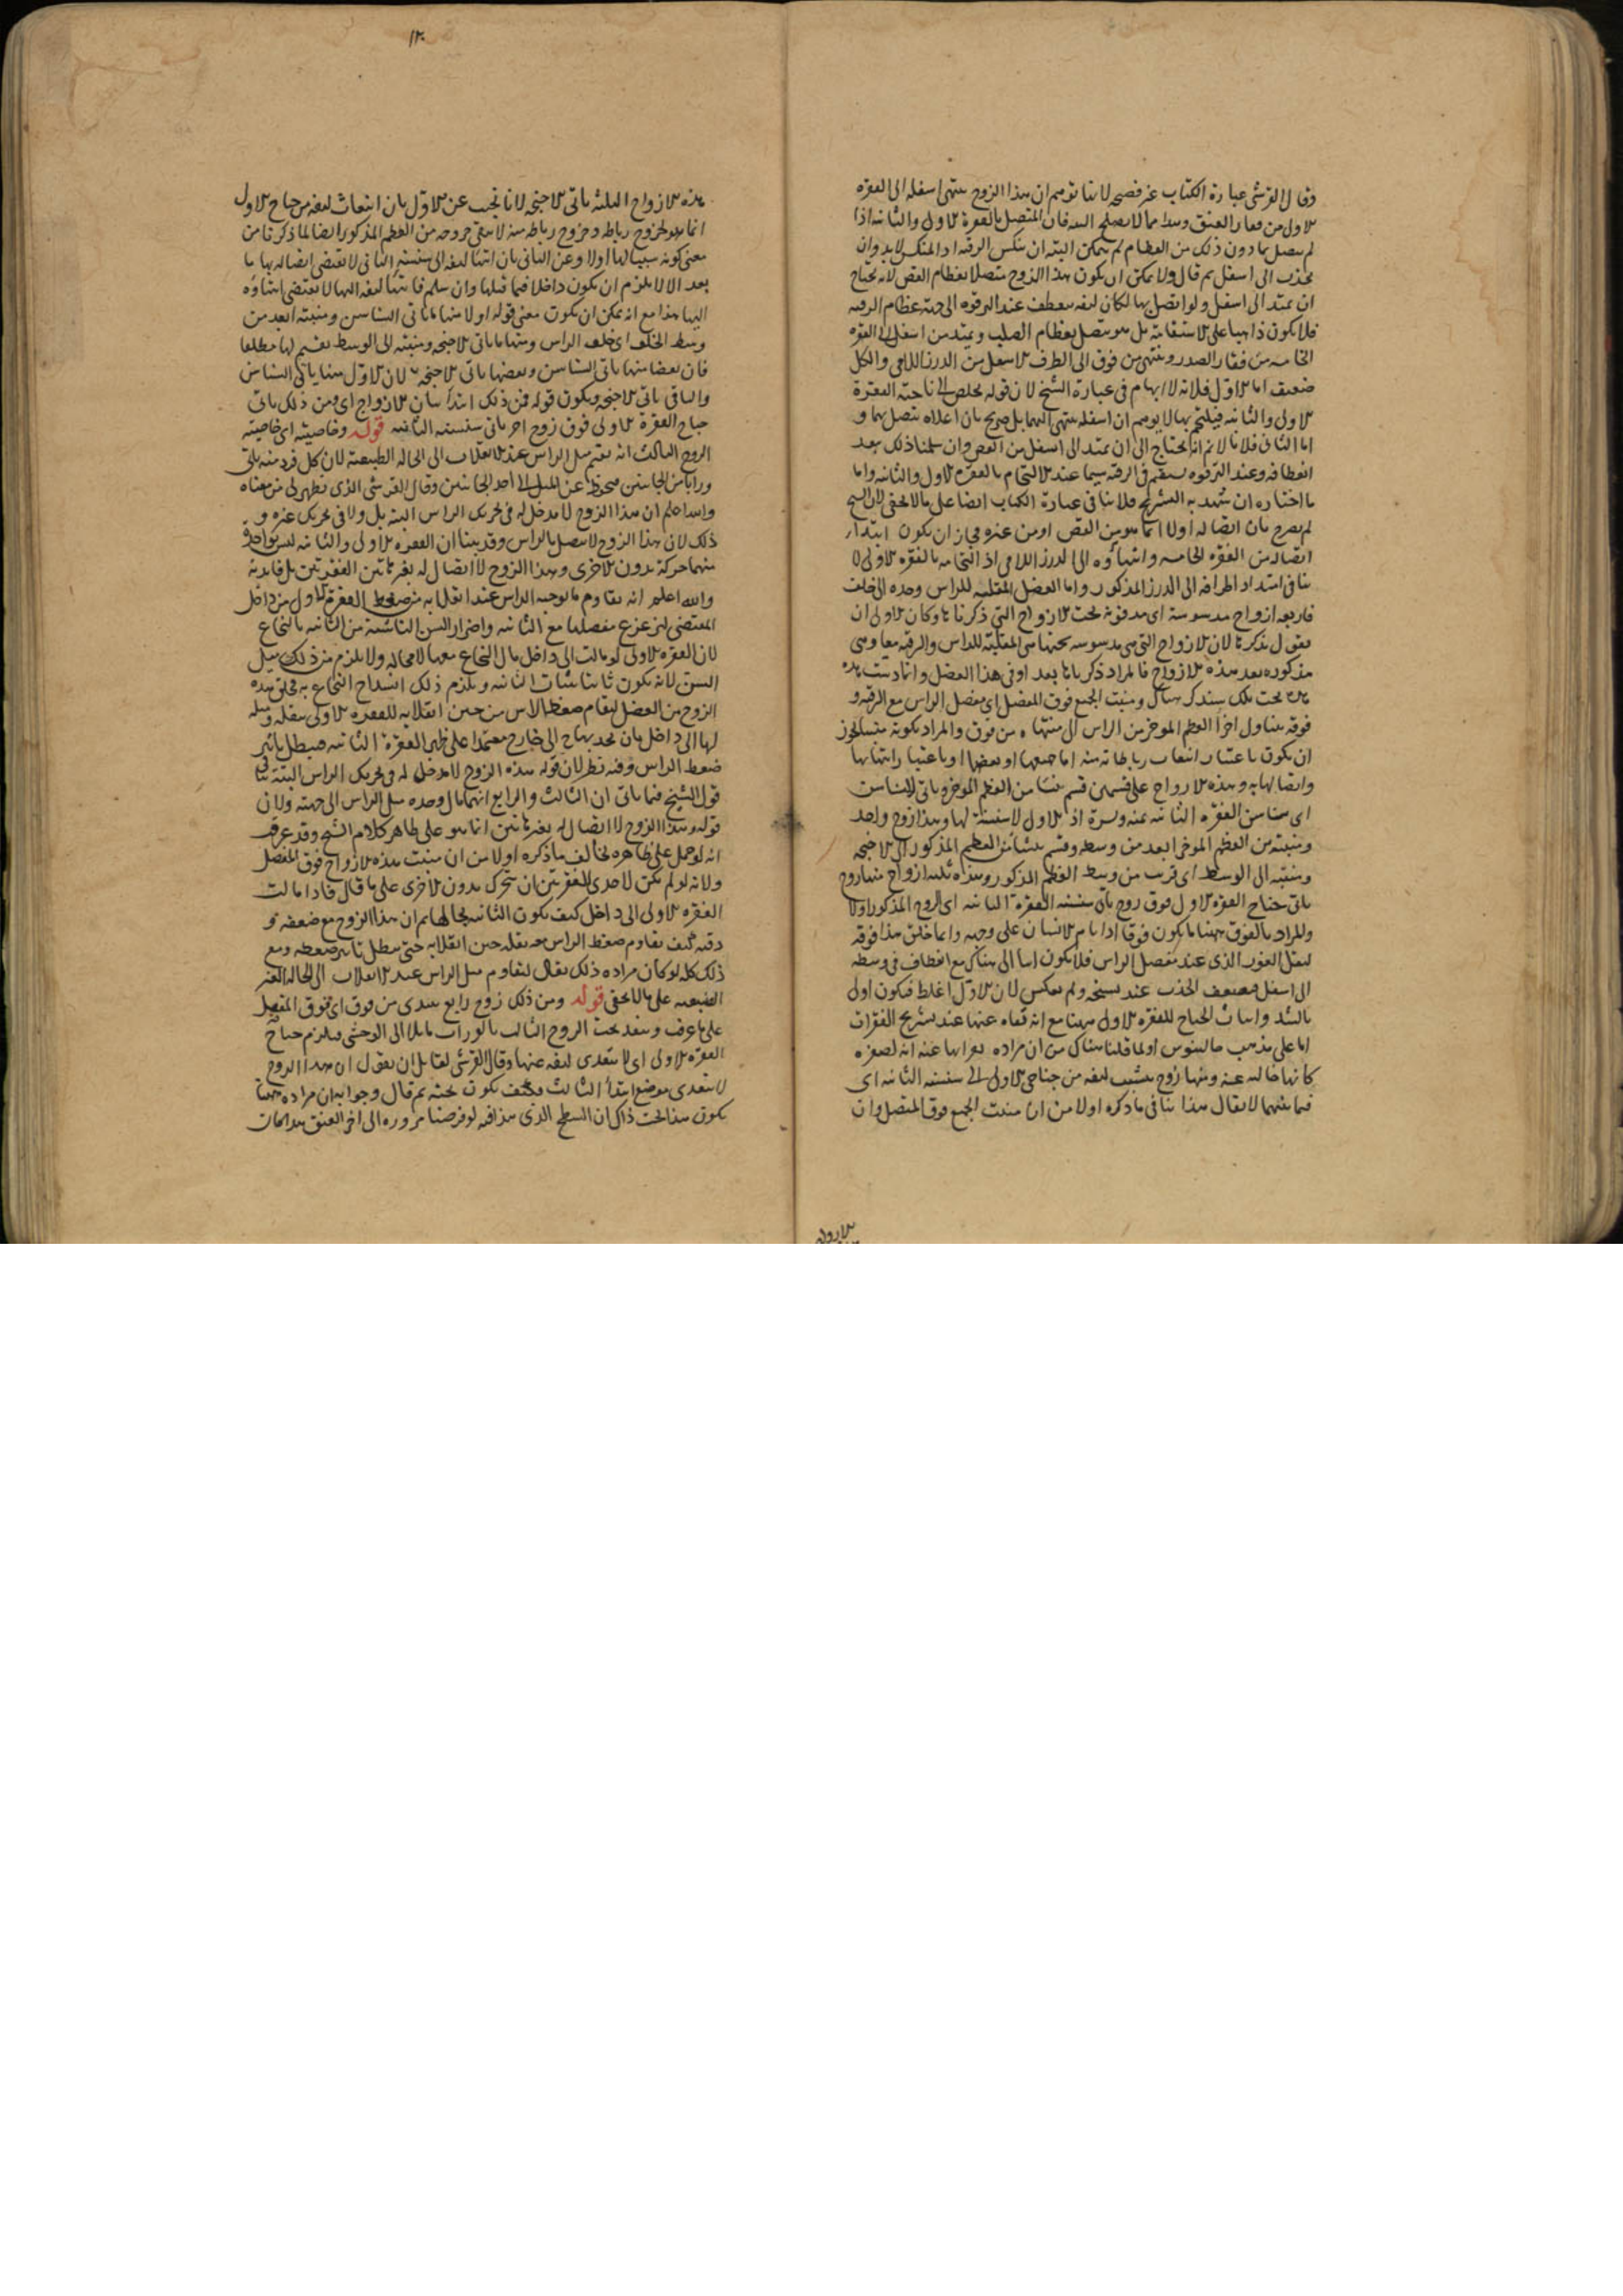 وقال القرشى عبارة الكتاب غير فصيحه لانها توهم ان هذا الزوج ينتهى اسفله الى الفقره
الاولى من فقار العنق وهذا مما لا يصلح البته فان المتصل بالفقرة الاولى والثانيه اذا
لم يتصل بما دون ذلك من العظام لم يتمكن البته ان ينكس الرقبه اذ المنكس لا بد وان
يجذب الى اسفل ثم قال ولا يمكن ان يكون هذا الزوج متصلا بعظام القص لانه يحتاج
ان يمتد الى اسفل ولو اتصل بها لكان ليفه ينعطف عند الترقوه الى جهة عظام الرقبه
فلا يكون ذاهبا على الاستقامة بل هو متصل بعظام الصلب ويمتد من اسفل الى الفقره
الخامسه من فقار الصدر وينتهى من فوق الى الطرف الاسفل من الدرز اللامى والكل
ضعيف اما الاول فلانه لا ابهام فى عبارة الشيخ لان قوله يخلص الى ناحية الفقرة
الاولى والثانيه فيلتحم بهما لا يوهم ان اسفله ينتهى اليهما بل صريح بان اعلاه يتصل بهما و
اما الثانى فلانا لا نم انه يحتاج الى ان يمتد الى اسفل من القص وان سلمنا ذلك بعد
انعطافه وعند الترقوه يستقيم فى الرقبه سيما عند الالتحام بالفقره الاولى والثانيه واما
ما اختاره ان شهد به التشريح فلا ينافى عبارة الكتاب ايضا على ما لا يخفى لان الشيخ
لم يصرح بان اتصاله اولا انما هو من القص او من غيره فجاز ان يكون ابتداء
اتصاله من الفقره الخامسه وانتهاؤه الى الدرز اللامى اذ التحامه بالفقره الاولى لا
ينافى امتداد اطرافه الى الدرز المذكور واما العضل المقلبه للراس وحده الى خلف
فاربعه ازواج مدسوسة اى مدفونة تحت الازواج التى ذكرناها وكان الاولى ان
يقول نذكرها لان الازواج التى هى مدسوسه تحتها هى المقلبة للراس والرقبه معا وهى
مذكوره بعد هذه الازواج فالمراد ذكرها ما بعد او فى هذا الفصل
تحت تلك سنذكر هناك ومنبت الجميع فوق المفصل اى مفصل الراس مع الرقبه و
فوقه يتناول اجزا العظم الموخر من الراس الى منتهاه من فوق والمراد بكونه منبتها يجوز
ان يكون باعتبار انبعاث رباطاته منه اما جميعها او بعضها او باعتبار انتهائها
واتصالها به وهذه الازواج على قسمين قسم ينشا من العظم الموخر وياتى السناسن
اى سناسن الفقره الثانيه يمنه ويسرة اذ الاولى لا سنسنة لها وهذا زوج واحد
ومنبته من العظم الموخر ابعد من وسطه وقسم ينشا من العظم المذكور الى الاجنحه
ومنبته الى الوسط اى قريب من وسط العظم المذكور وهذه ثلثه ازواج منها زوج
ياتى جناح الفقره الاولى فوق زوج ياتى سنسنه الفقرة الثانيه اى الزوج المذكور اولا
والمراد بالفوق ههنا ما يكون فوقا اذا نام الانسان على وجهه وانما خلق هذا فوقه
ليقل الغور الذى عند مفصل الراس فلا يكون هناك مع انعطاف فى وسطه
الى اسفل فيضعف الجذب عند تشنجه ولم يعكس لان الاول اغلظ فيكون اولى
بالشد واثبات الجناح للفقره الاولى ههنا مع انه نفاه عنها عند تشريح الفقرات
اما على مذهب جالينوس او لما قلنا هناك من ان مراده عنه انه لصغره
كانها خاليه عنه ومنها زوج يتشعب ليفه من جناحى الاولى الى سنسنه الثانيه اى
فيما بينهما لا يقال هذا ينافى ما ذكره اولا من ان منبت الجميع فوق المفصل وان
الازواج
١٢٠
هذه الازواج الثلثه ياتى الاجنحه لانا نجيب عن الاول بان انبعاث ليفه من جناح الاولى
انما هو لخروج رباطه وخروج رباطه منه لا ينفى خروجه من العظم المذكور ايضا لما ذكرنا من
معنى كونه سببا لها اولا وعن الثانى بان انتها ليفه الى سنسنه الثانى لا يقتضى اتصاله بها
بعد اذ لا يلزم ان يكون داخلا فيما قبلها وان سلم فانتها ليفه اليها لا يقتضى انتهاؤه
اليها هذا مع انه يمكن ان يكون معنى قوله اولا منها ما ياتى السناسن ومنبته ابعد من
وسط الخلف اى خلف الراس ومنها ما ياتى الاجنحه ومنبته الى الوسط تقسيم لها مطلقا
فان بعضا منها ياتى السناسن وبعضها ياتى الاجنحه لا ان الاول منها ياتى السناسن
والباقى ياتى الاجنحه ويكون قوله فمن ذلك ابتداء بيان الازواج اى ومن ذلك ياتى
جناح الفقرة الاولى فوق زوج اخر ياتى سنسنه الثانيه قوله وخاصيته اى خاصيته
الزوج الثالث انه يقيم ميل الراس عند الانقلاب الى الحاله الطبيعيه لان كل فرد منه ياتى
وراءها من الجانبين محفوظا عن الميل الى احد الجانبين وقال القرشى الذى يظهر لى من معناه
والله اعلم ان هذا الزوج لا مدخل له فى تحريك الراس البته بل ولا فى تحريك غيره و
ذلك لان هذا الزوج لا يتصل بالراس وقد بينا ان الفقره الاولى والثانيه ليس لواحدة
منهما حركة بدون الاخرى وهذا الزوج لا اتصال له بغير هاتين الفقرتين بل فايدته
والله اعلم انه يقاوم ما يوجبه الراس عند انقلابه من ضغط الفقرة الاولى من داخل
المقتضى لتزعزع مفصلها مع الثانيه واضرار السن الناشئة من الثانيه بالنخاع
لان الفقره الاولى لو مالت الى داخل مال النخاع معها لا محاله ولا يلزم من ذلك ميل
السن لانه يكون ثابتا بثبات الثانيه ويلزم ذلك انشداخ النخاع به فخلق هذه
الزوج من العضل ليقاوم ضغط الراس من حين انقلابه للفقره الاولى بثقله وميله
لها الى داخل بان يجذبها الى خارج معتمدا على ظهر الفقرة الثانيه فيبطل تاثير
ضغط الراس وفيه نظر لان قوله هذه الزوج لا مدخل له فى تحريك الراس البتة
قول الشيخ فيما ياتى ان الثالث والرابع ايهما مال وحده ميل الراس الى جهته ولان
قوله وهذا الزوج لا اتصال له بغير هاتين انما هو على ظاهر كلام الشيخ وقد عرفت
انه لو حمل على ظاهره لخالف ما ذكره اولا من ان منبت هذه الازواج فوق المفصل
ولانه لو لم يمكن لاحدى الفقرتين ان تتحرك بدون الاخرى على ما قال فاذا مالت
الفقره الاولى الى داخل كيف يكون الثانيه بحالها ثم ان هذا الزوج مع ضعفه و
دقته كيف يقاوم ضغط الراس مع ثقله حين انقلابه حتى يبطل تاثير ضغطه ومع
ذلك كله لو كان مراده ذلك يقال ليقاوم ميل الراس عند الانقلاب الى الحاله الغير
الطبيعيه على ما لا يخفى قوله ومن ذلك زوج رابع يبتدى من فوق اى فوق المفصل
على ما عرف وينفذ تحت الزوج الثالث بالوراب مايلا الى الوحشى فيلزم جناح
الفقره الاولى اى لا يتعدى ليفه عنها وقال القرشى لقايل ان يقول ان هذا الزوج
لا يتعدى موضع ابتداء الثالث فكيف يكون تحته ثم قال وجوابه ان مراده ههنا
بكون هذا تحت ذاك ان السطح الذى هذا فيه لو فرضنا مروره الى اخر العنق هذا لكان